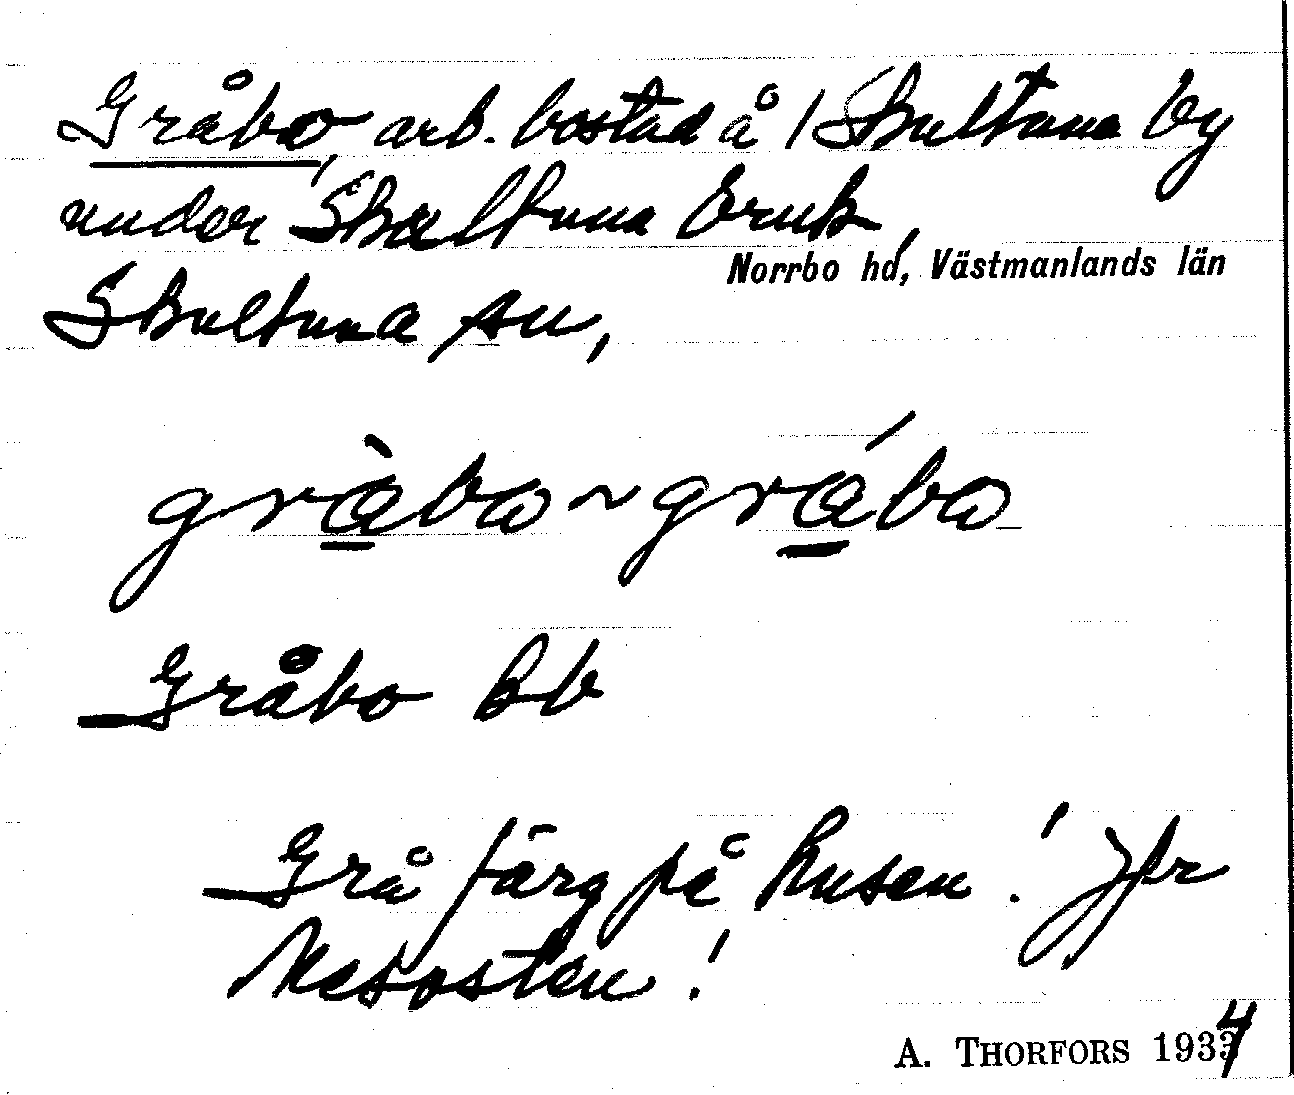 Gråbo, arb. bostad å 1 Skultuna by
under Skultuna bruk,
Norrbo hd, Västmanlands län
Skultuna sn,
gràbo ~ grábo
Gråbo Bb
Grå färg på husen! Jfr
Mesosten!
A. THORFORS 1934